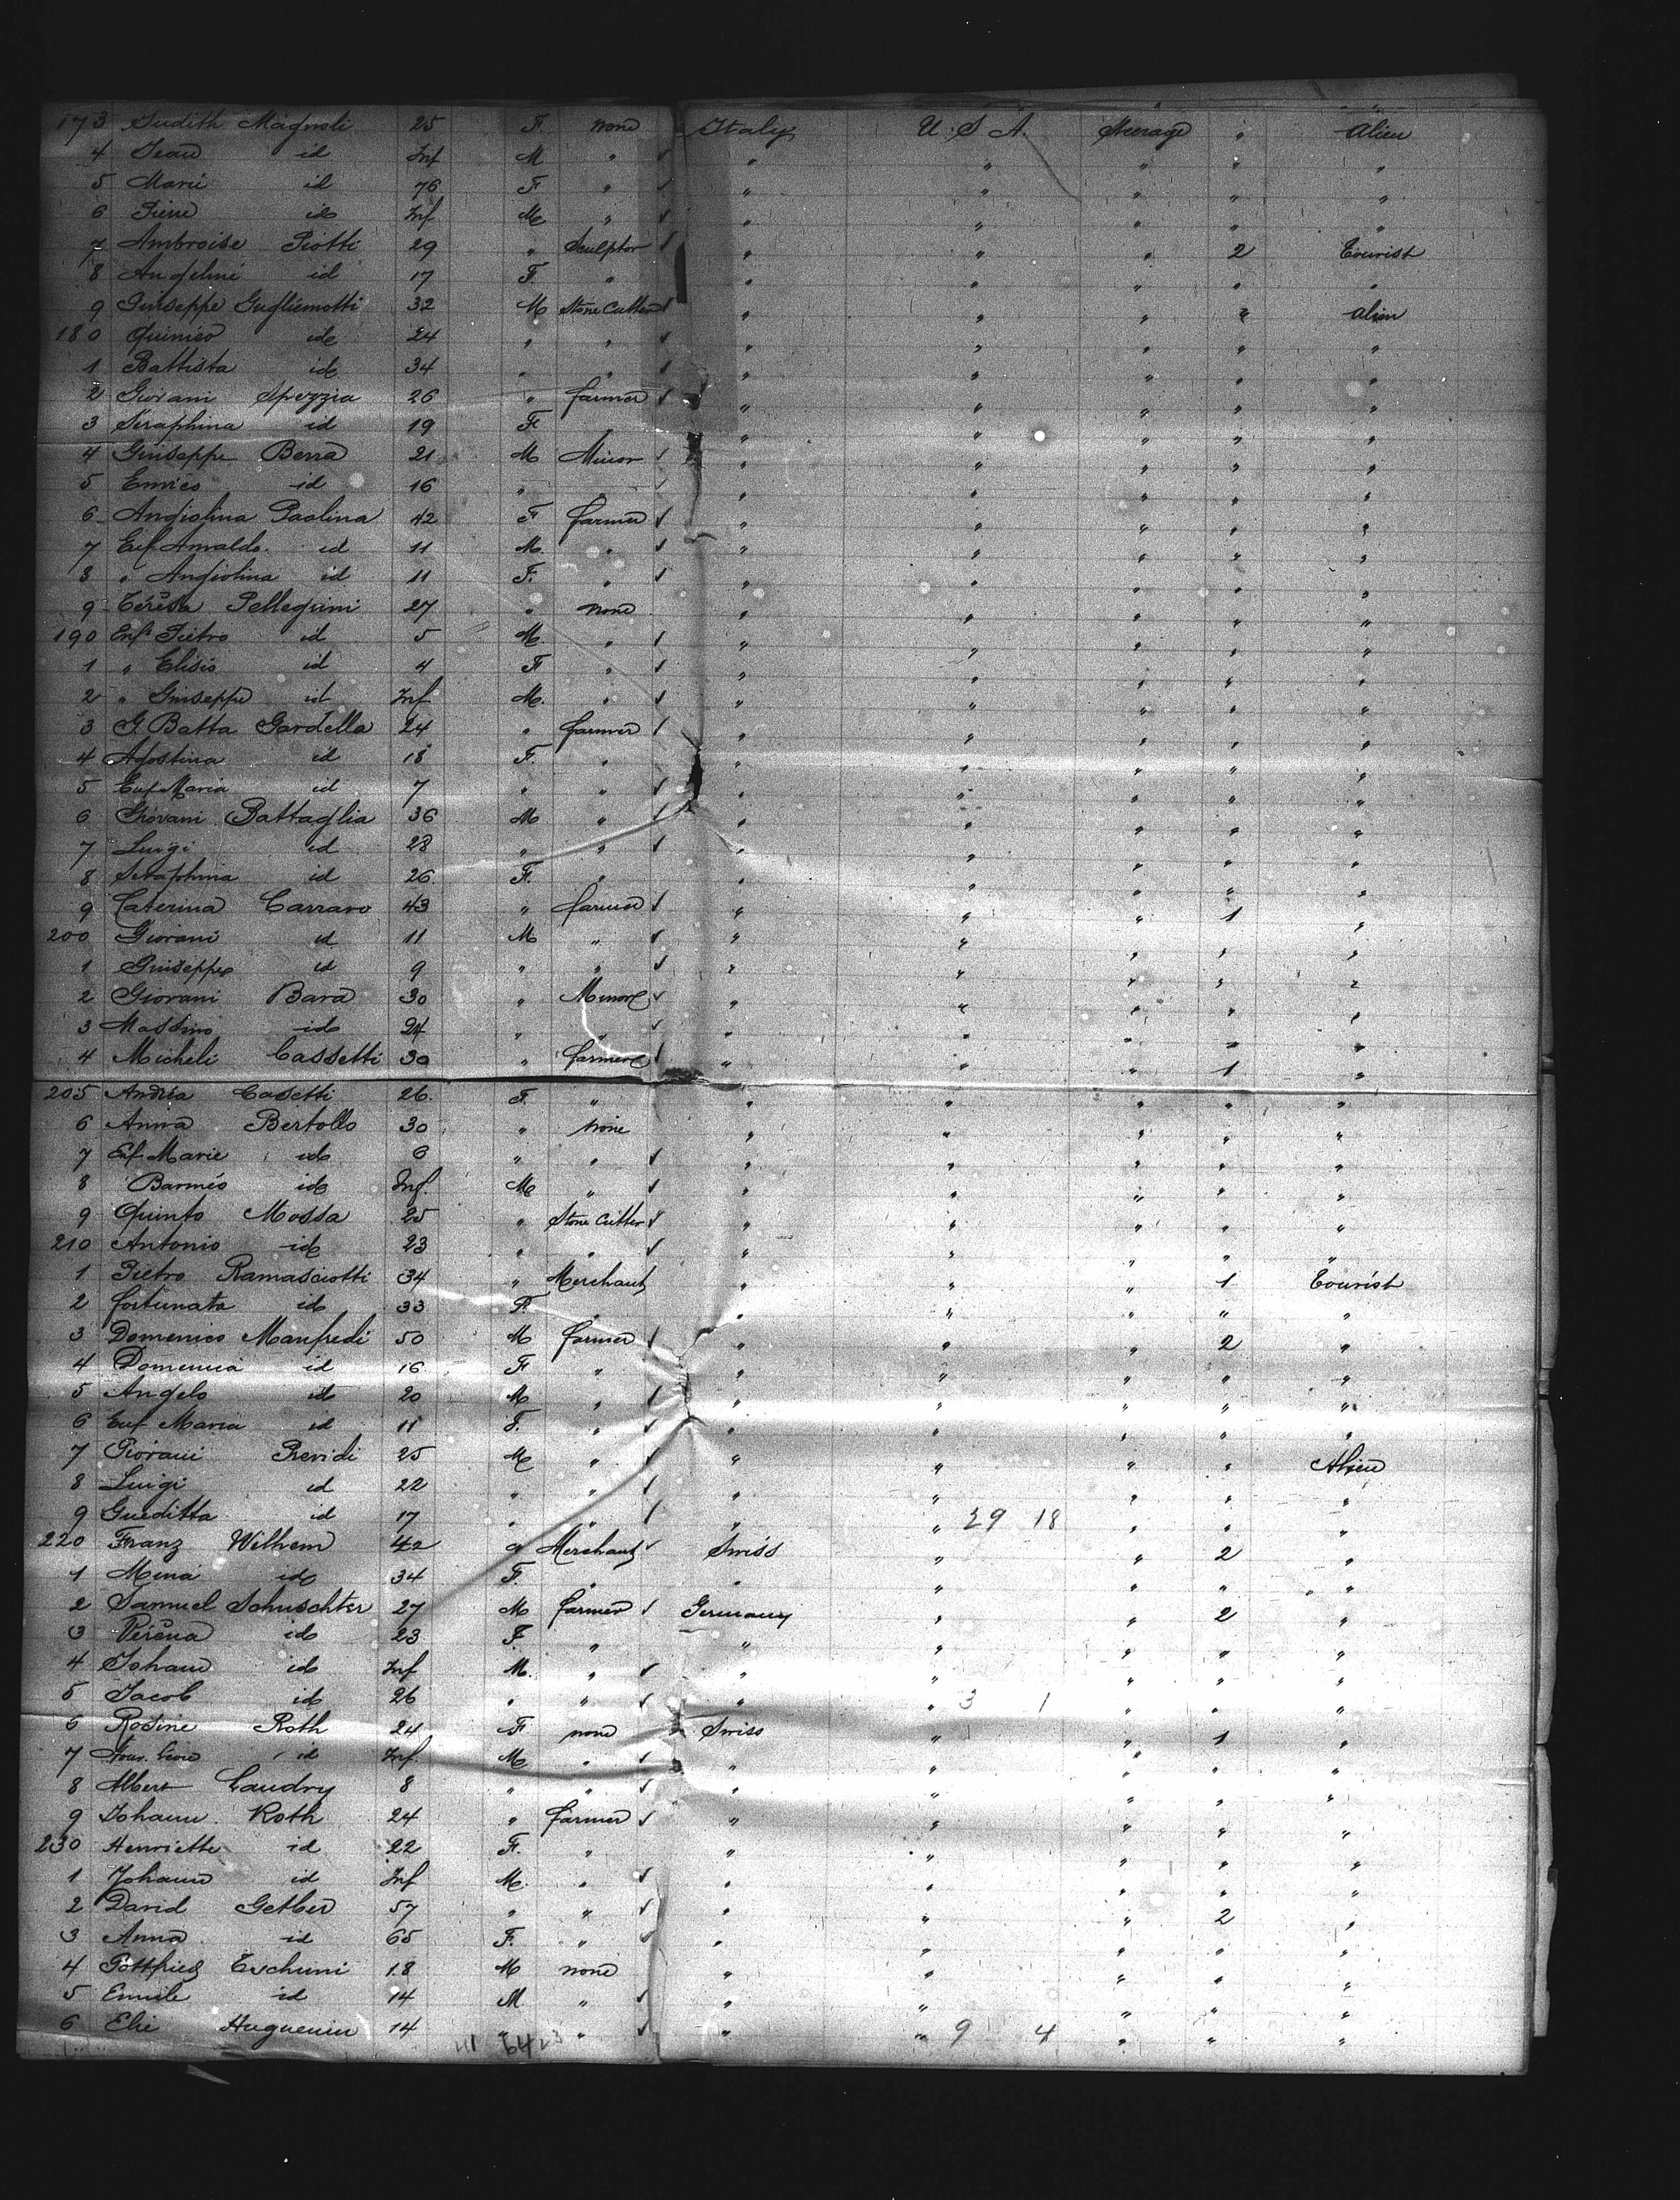 173 Judith Magnoli 25 F. none Italy U.S.A. Steerage " Alien
4 Jean id Inf M " ✓ " " " " "
5 Marie id 76 F " ✓ " " " " "
6 Pierre id Inf M " ✓ " " " " "
7 Ambroise Piotti 29 " Sculptor ✓ " " " 2 Tourist
8 Angeline id 17 F " " " " " "
9 Guiseppe Gugliemotti 32 M Stone Cutter ✓ " " " 2 Alien
180 Quinico id 24 " " ✓ " " " " "
1 Battista id 34 " " ✓ " " " " "
2 Giovani Spezzia 26 " farmer ✓ " " " " "
3 Seraphina id 19 F " " " " " "
4 Guiseppe Berra 21 M Minor ✓ " " " " "
5 Enrico id 16 " " ✓ " " " " "
6 Angiolina Paolina 42 F farmer ✓ " " " " "
7 Enf Arnaldo id 11 M " ✓ " " " " "
8 " Angiolina id 11 F. " ✓ " " " " "
9 Térésa Pellegrini 27 " none " " " " "
190 Enf Pietro id 5 M. " ✓ " " " " "
1 " Elisio id 4 F " ✓ " " " " "
2 " Guiseppe id Inf M. " ✓ " " " " "
3 G. Batta Gardella 24 " farmer ✓ " " " " "
4 Agostina id 18 F. " " " " " "
5 Enf Maria id 7 " " ✓ " " " " "
6 Giovani Battaglia 36 M " ✓ " " " " "
7 Luigi id 28 " " ✓ " " " " "
8 Seraphina id 26. F. " " " " " "
9 Caterina Carraro 43 " farmer ✓ " " " 1 "
200 Giovani id 11 M " ✓ " " " " "
1 Guiseppe id 9 " " ✓ " " " " "
2 Giovani Bara 30 " Minor ✓ " " " " "
3 Massimo id 24 " " ✓ " " " " "
4 Micheli Cassetti 30 " farmer ✓ " " " 1 "
205 Andréa Casetti 26. F. " " " " " "
6 Anna Bertollo 30 " none " " " " "
7 Enf Marie id 6 " " ✓ " " " " "
8 id Inf. M " ✓ " " " " "
9 Quinto Mossa 25 " Stone Cutter ✓ " " " " "
210 Antonio id 23 " " ✓ " " " " "
1 Pietro Ramasciotti 34 " Merchant " " " 1 Tourist
2 fortunata id 33 F. " " " " " "
3 Domenico Manfredi 50 M farmer ✓ " " " 2 "
4 Domenica id 16 F " " " " " "
5 Angelo id 20 M " ✓ " " " " "
6 Enf Maria id 11 F. " ✓ " " " " "
7 Giovani Previdi 25 M " ✓ " " " " Alien
8 Luigi id 22 " " ✓ " " " " "
9 Gueditta id 17 " " ✓ " " 29 18 " " "
220 Franz Wilhem 42 " Merchant ✓ Swiss " " 2 "
1 Mina id 34 F. " " " " " "
2 Samuel Schuschter 27 M farmer ✓ Germany " " 2 "
3 Véréna id 23 F " " " " " "
4 Johann id Inf M. " ✓ " " " " "
5 Jacob id 26 " " ✓ " " 3 1 " " "
6 Rosine Roth 24 F none Swiss " " 1 "
7 id Inf. M " ✓ " " " " "
8 Albert Caudry 8 " " ✓ " " " " "
9 Johann Roth 24 " farmer ✓ " " " " "
230 Henriette id 22 F. " " " " " "
1 Johann id Inf M. " ✓ " " " " "
2 David Gerber 57 " " ✓ " " " 2 "
3 Anna id 65 F. " ✓ " " " " "
4 Gottfried Tschuni 18 M none " " " " "
5 Emile id 14 M " ✓ " " " " "
6 Elie Huguenin 14 " " ✓ " " 9 4 " " "
41 64 23